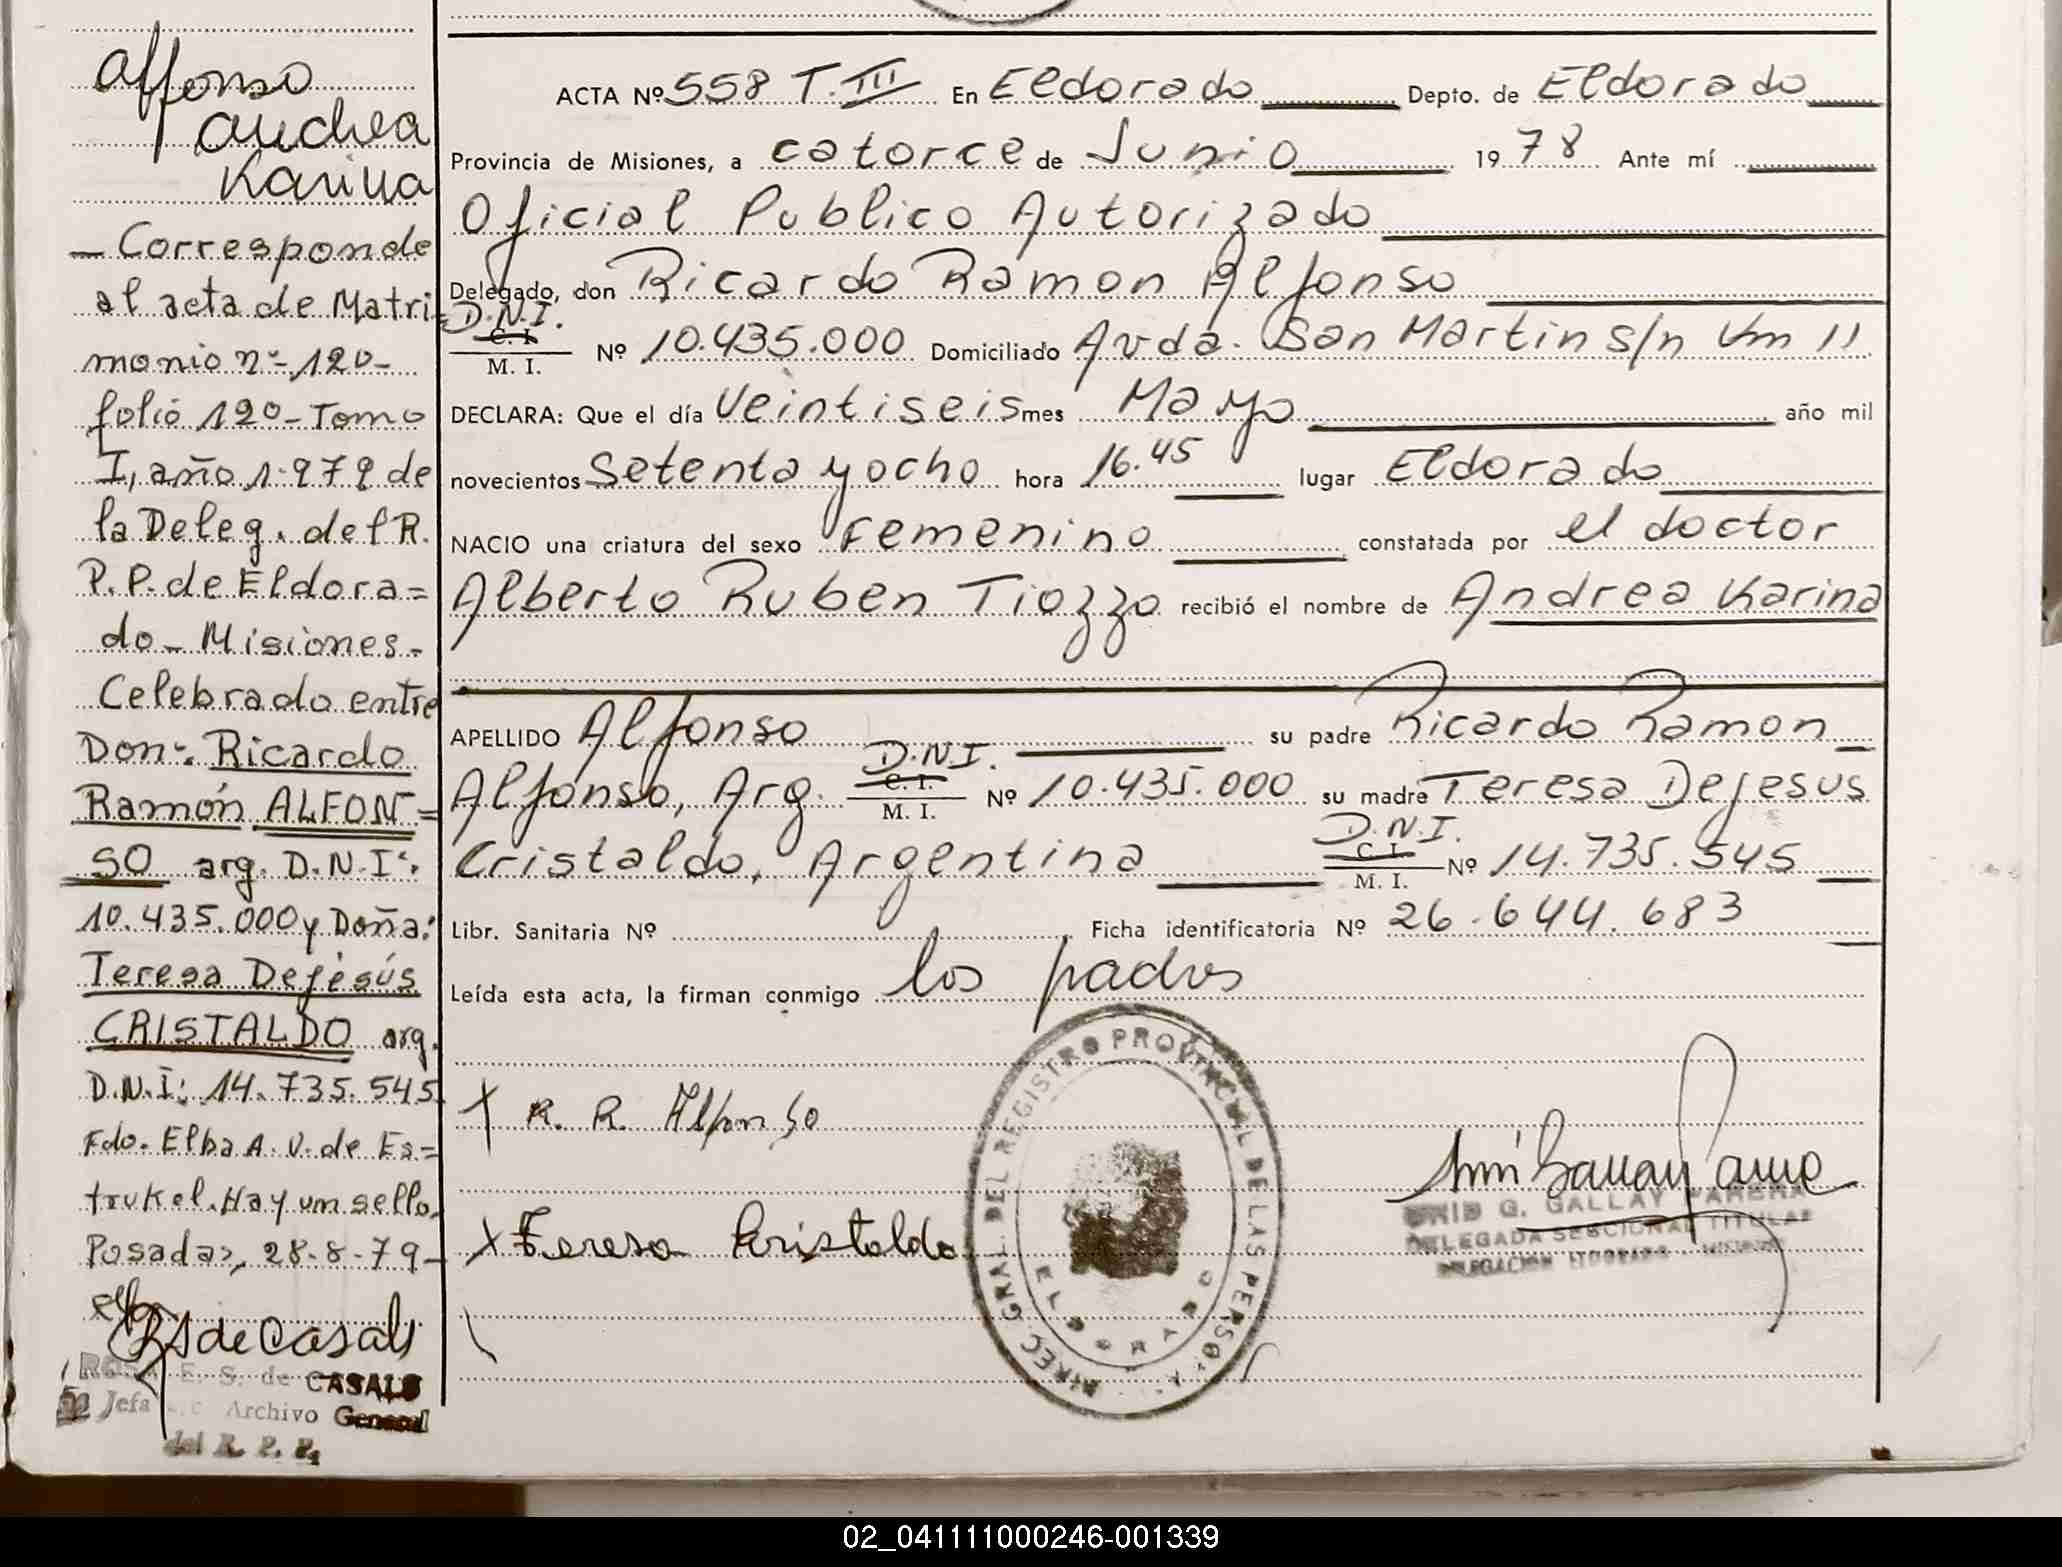 Alfonso
Andrea
Karina
— Corresponde
al acta de Matri=
monio nº 120-
folio 120- Tomo
I, año 1.979 de
la Deleg. del R.
P.P. de Eldora=
do - Misiones.-
Celebrado entre
Don: Ricardo
Ramón ALFON=
SO arg. D.N.I:
10.435.000 y Doña:
Teresa Dejesús
CRISTALDO arg.
D.N.I: 14.735.545
Fdo. Elba A. V. de Es=
trukel. Hay un sello.
Posadas, 28-8-79-
RS de Casals
ROSA E. S. de CASALS
Jefa Archivo General
del R. P. P.
ACTA Nº 558 T. III En Eldorado Depto. de Eldorado
Provincia de Misiones, a catorce de Junio 1978 Ante mí
Oficial Publico Autorizado
Delegado, don Ricardo Ramon Alfonso
D.N.I.
C. I.
M. I. Nº 10.435.000 Domiciliado Avda. San Martin s/n Km 11
DECLARA: Que el día Veintiseis mes Mayo año mil
novecientos Setenta y ocho hora 16.45 lugar Eldorado
NACIO una criatura del sexo Femenino constatada por el doctor
Alberto Ruben Tiozzo recibió el nombre de Andrea Karina
APELLIDO Alfonso su padre Ricardo Ramon
Alfonso, Arg. D.N.I. C. I. M. I. Nº 10.435.000 su madre Teresa Dejesus
Cristaldo, Argentina D.N.I. C. I. M. I. Nº 14.735.545
Libr. Sanitaria Nº Ficha identificatoria Nº 26.644.683
Leída esta acta, la firman conmigo los padres
x R. R. Alfonso
x Teresa Cristaldo
DIREC. GRAL. DEL REGISTRO PROVINCIAL DE LAS PERSONAS
ELDORADO
G. GALLAY
DELEGADA SECCIONAL TITULAR
DELEGACION ELDORADO - MISIONES
02_041111000246-001339